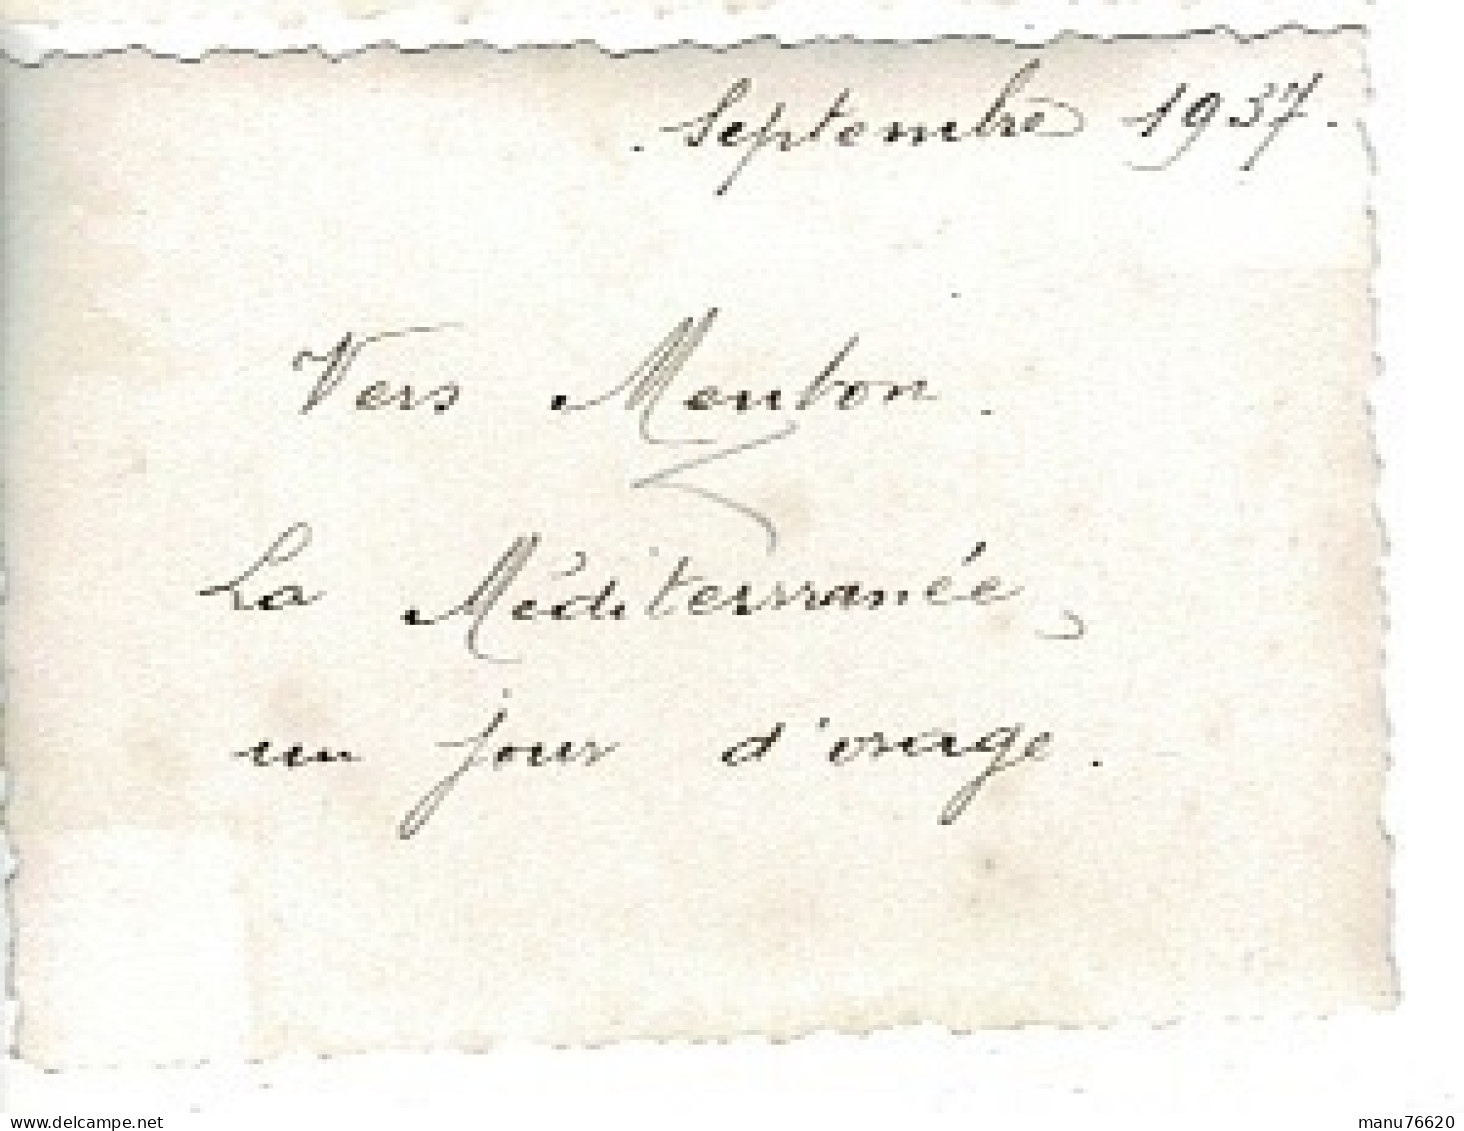 . Septembre 1937.
Vers Menton.
La Méditerranée,
un jour d'orage.
www.delcampe.net
manu76620